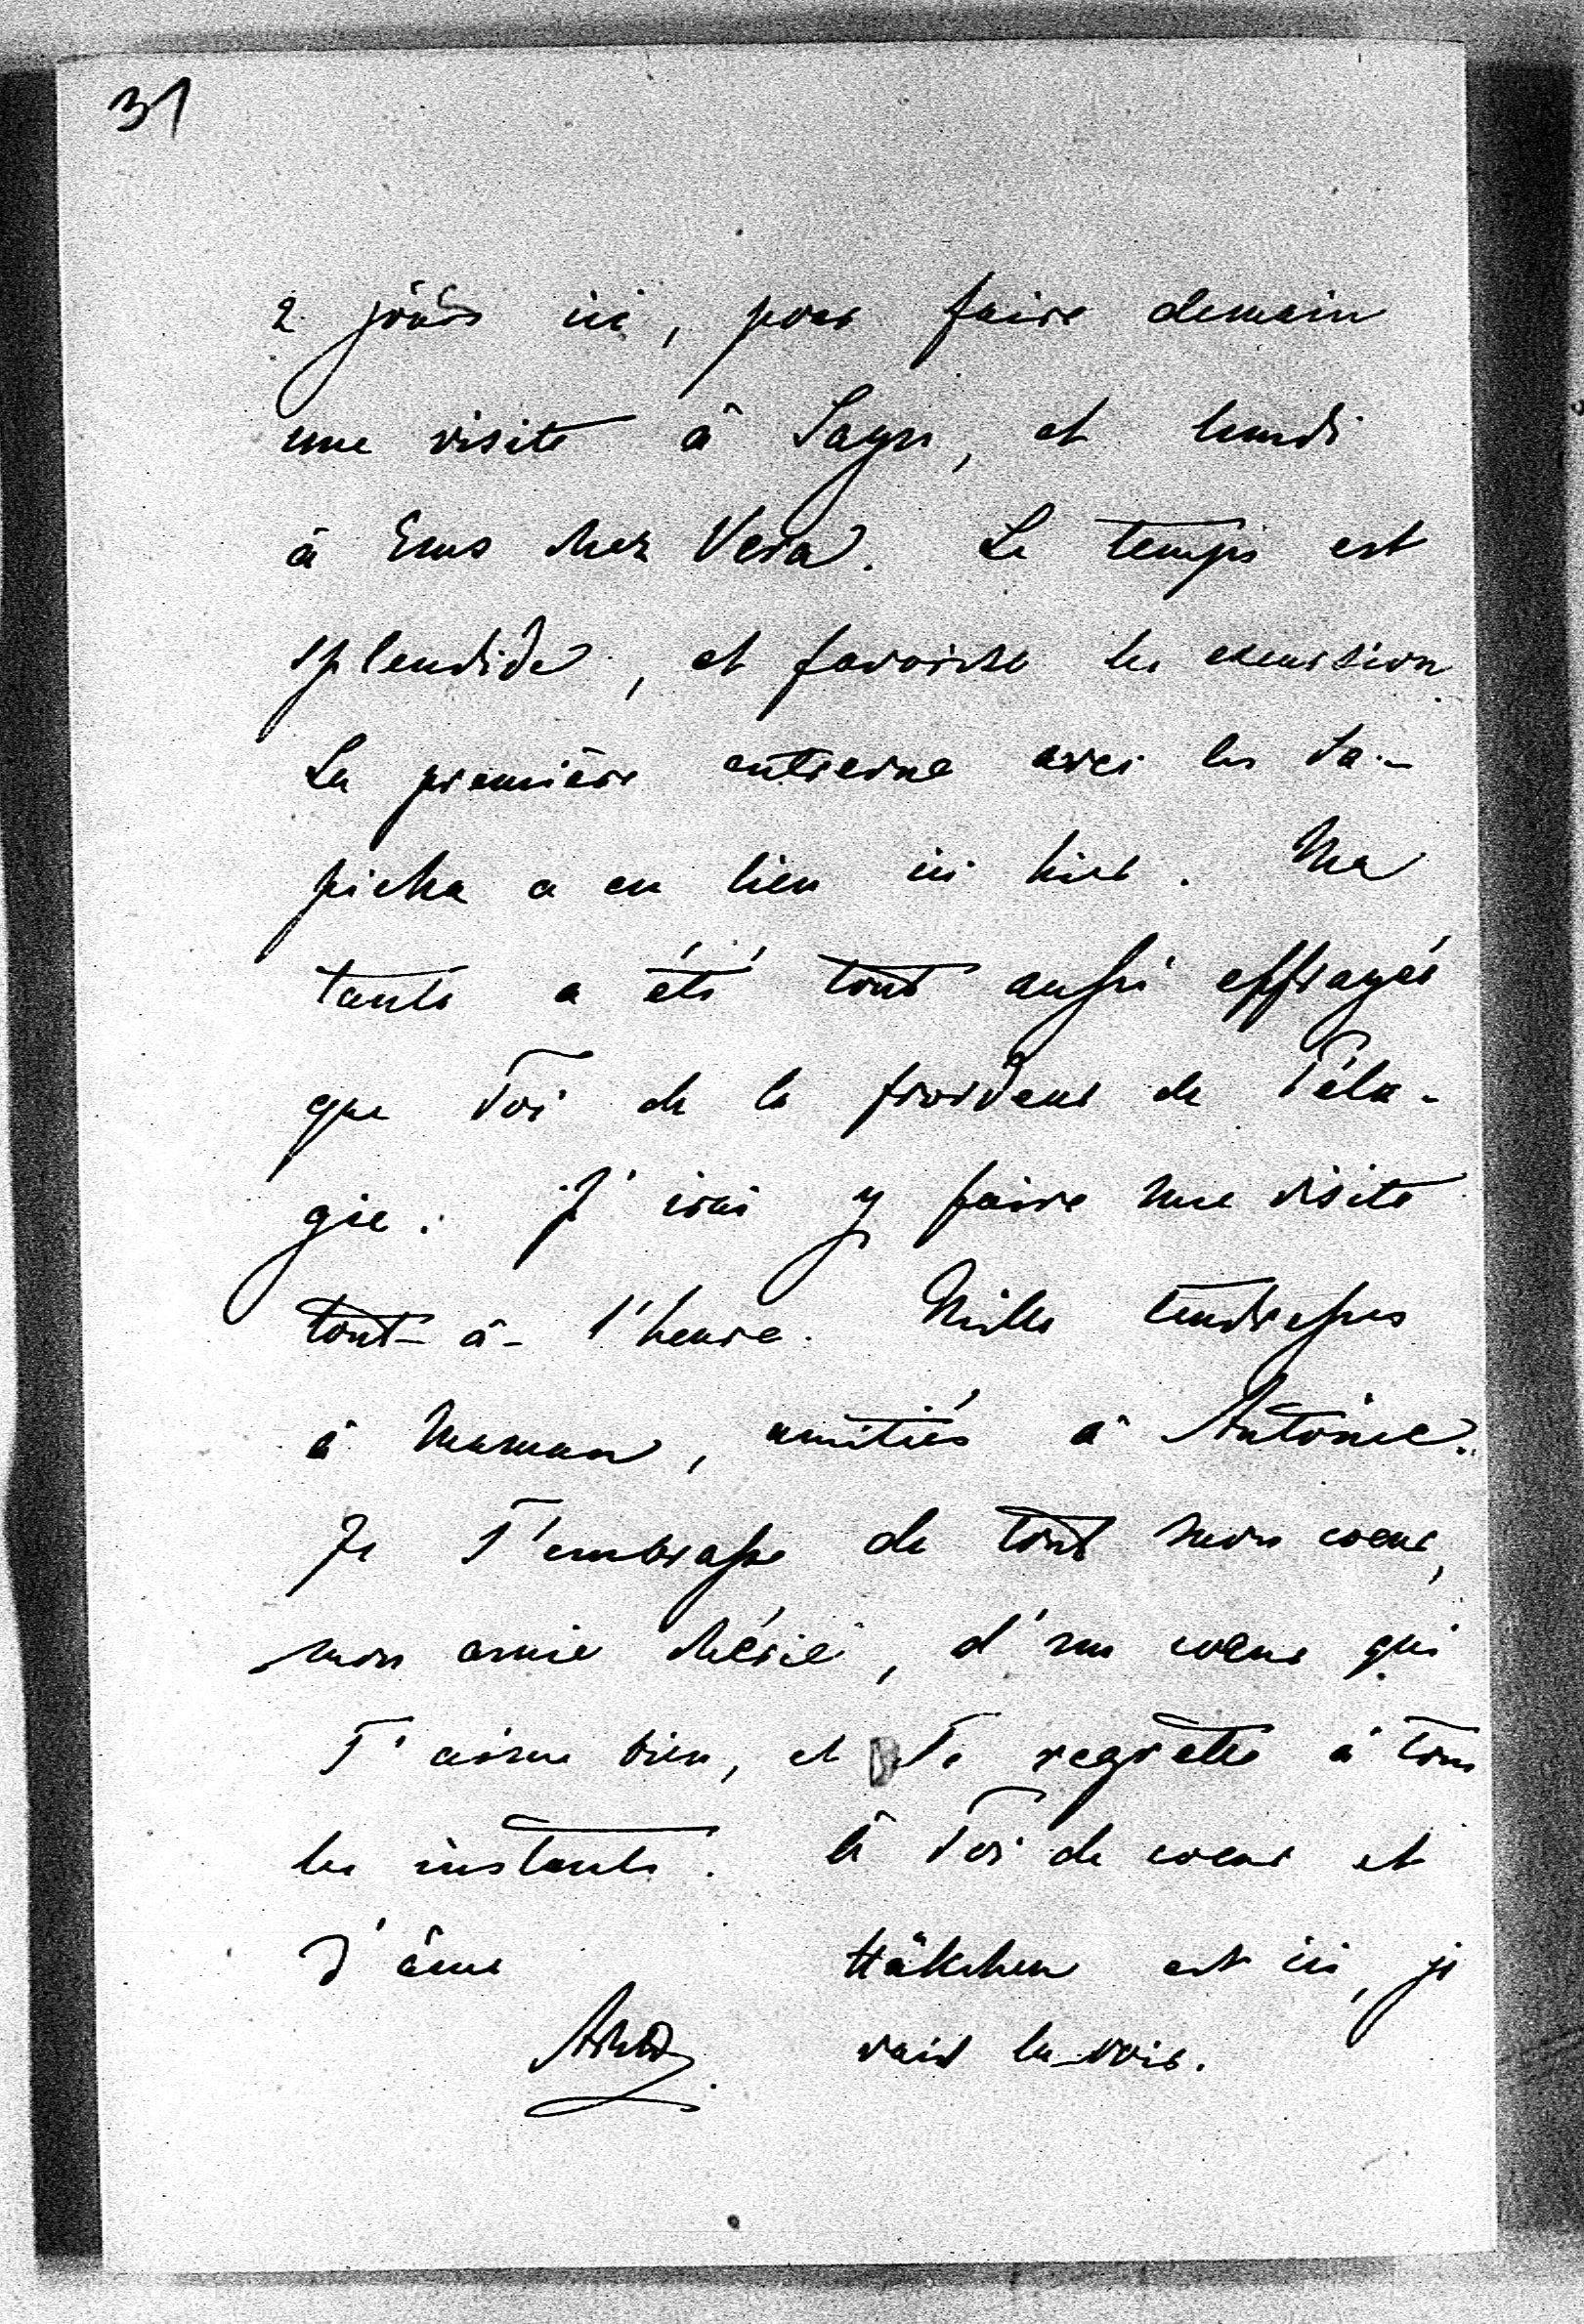 31
2 jours ici, pour faire demain
une visite à Sayn, et lundi
à Ems chez Vera. Le temps est
splendide, et favorise les excursion
La première entrevue avec les Sa-
picha a eu lieu ici hier. Ma
tante a été tout aussi effrayée
que Toi de la froideur de Péla-
gie. J'irai y faire une visite
tout-à-l'heure. Mille tendresses
à Maman, amitiés à Antoine.
Je T'embrasse de tout mon coeur,
mon amie chérie, d'un coeur qui
T'aime bien, et Te regrette à tous
les instants. à Toi de coeur et
d'âme
Häkchen est ici, je
vais la voir.